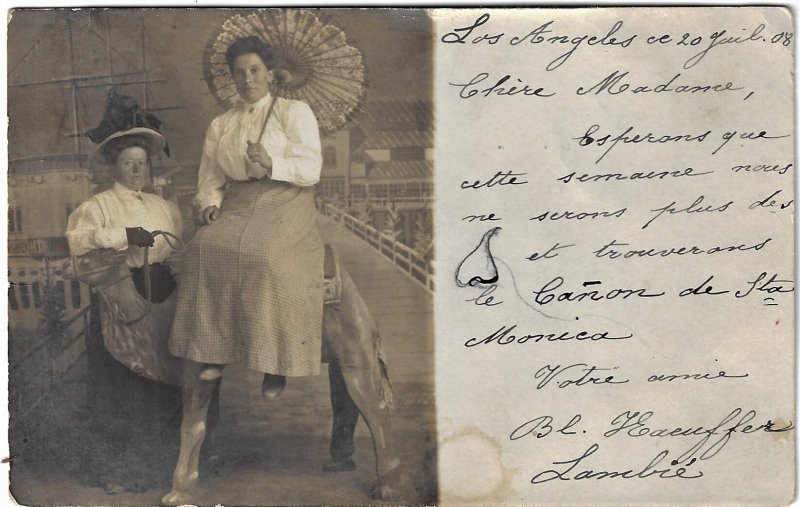 Los Angeles ce 20 Juil. 08
Chère Madame,
Esperons que
cette semaine nous
ne serons plus des
et trouverons
le Cañon de Sta
Monica
Votre amie
Bl. Haeuffer
Lambié